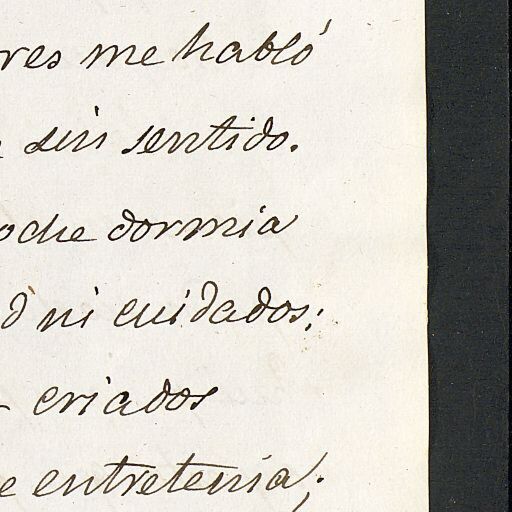 res me habló
sin sentido.
oche dormia
d ni cuidados;
criados
e entretenia;